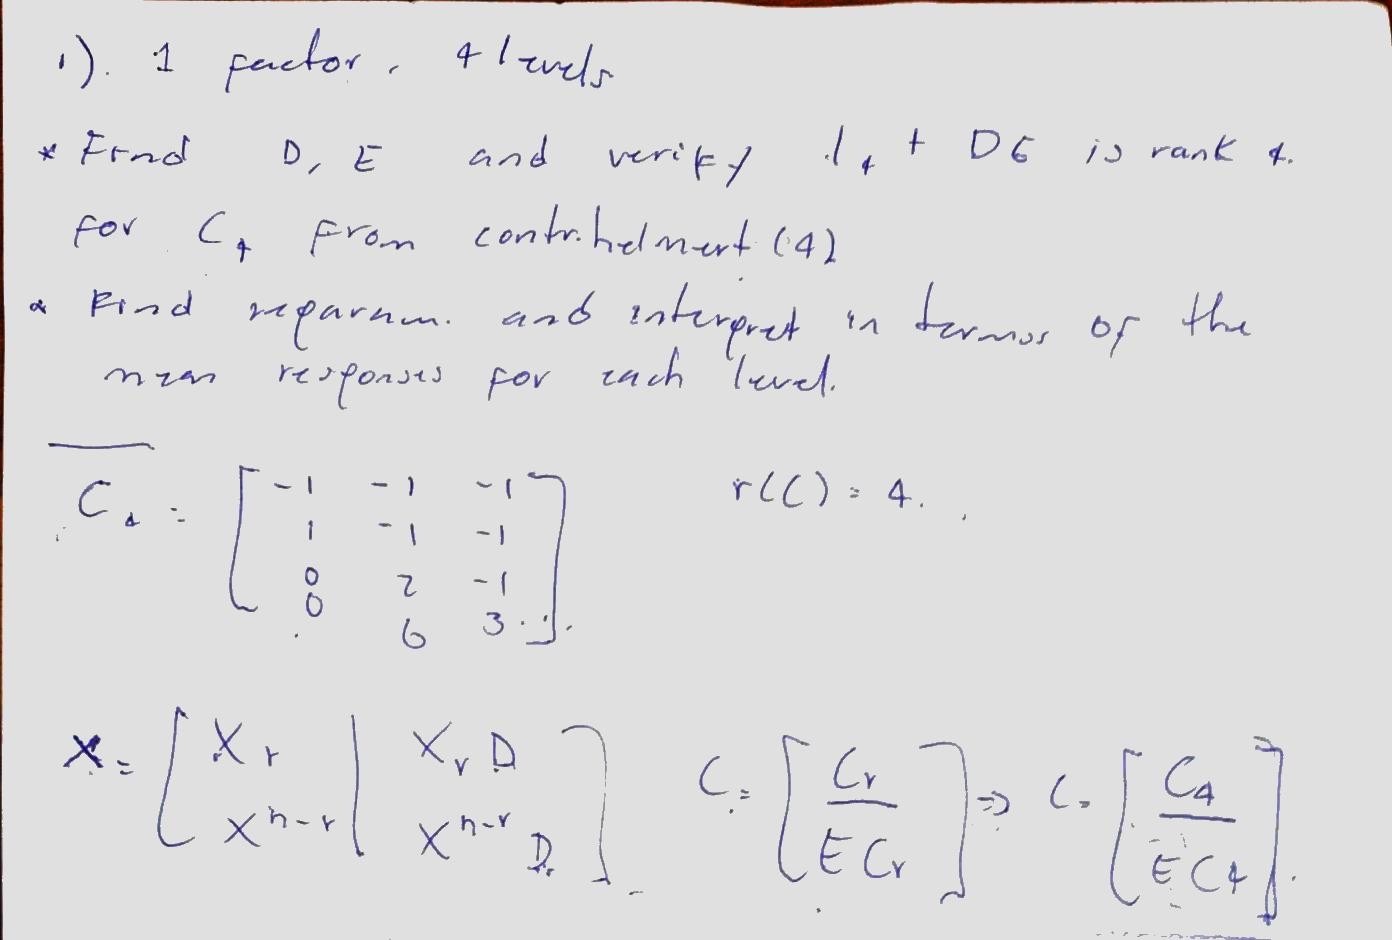 1). 1 factor, 4 levels
* Find D, E and verify I4 + DE is rank 4.
for C4 from contr.helmert (4)
* Find reparam. and interpret in terms of the
mean responses for each level.
C4 = [ -1 -1 -1 r(C) = 4.
1 -1 -1
0 2 -1
0 0 3 ].
X = [ Xr | Xr D ] C = [ Cr ] => C = [ C4 ]
X^n-r | X^n-r D. E Cr E C4 ].